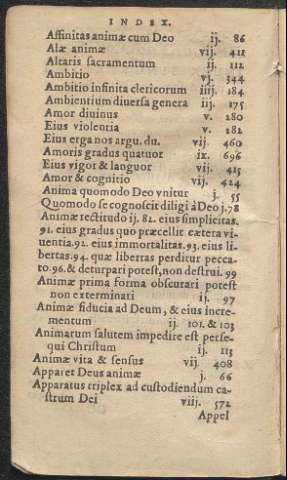 INDEX.
Affinitas animæ cum Deo ij. 86
Alæ animæ vij. 421
Altaris sacramentum ij. 112
Ambitio vj. 344
Ambitio infinita clericorum iiij. 184
Ambientium diuersa genera iij. 175
Amor diuinus v. 280
Eius violentia v. 282
Eius erga nos argu. du. vij. 460
Amoris gradus quatuor ix. 696
Eius vigor & languor vij. 425
Amor & cognitio vij. 424
Anima quomodo Deo vnitur j. 55
Quomodo se cognoscit diligi à Deo j. 78
Animæ rectitudo ij. 82. eius simplicitas.
91. eius gradus quo præcellit cætera vi-
uentia. 92. eius immortalitas. 93. eius li-
bertas. 94. quæ libertas perditur pecca-
to. 96. & deturpari potest, non destrui. 99
Animæ prima forma obscurari potest
non exterminari ij. 97
Animæ fiducia ad Deum, & eius incre-
mentum ij. 101. & 103
Animarum salutem impedire est perse-
qui Christum ij. 115
Animæ vita & sensus vij. 408
Apparet Deus animæ j. 66
Apparatus triplex ad custodiendum ca-
strum Dei viij. 572
Appel